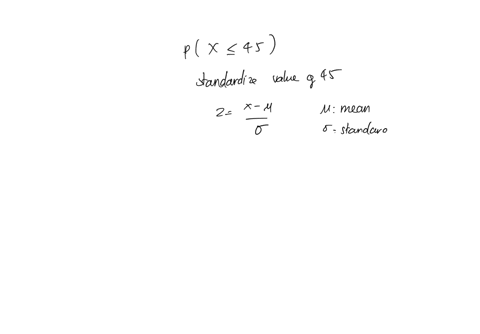 P( X ≤ 45 )
standardize value of 45
z = x - μ / σ
μ: mean
σ: standard